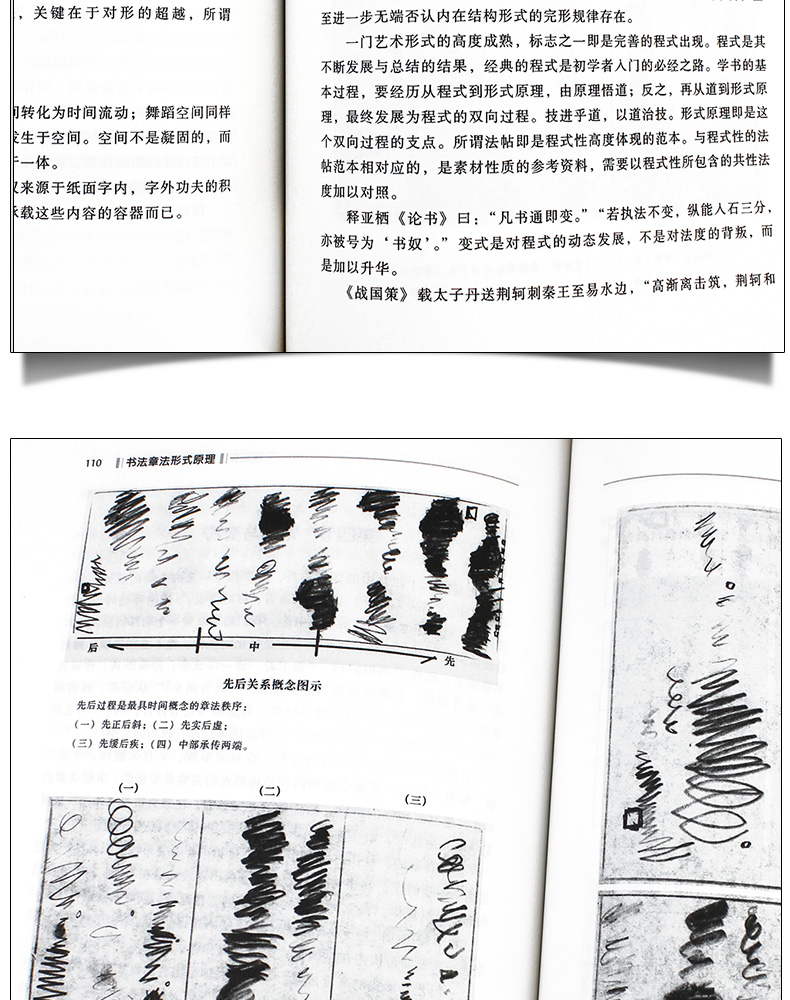 ，关键在于对形的超越，所谓
间转化为时间流动；舞蹈空间同样
发生于空间。空间不是凝固的，而
于一体。
来源于纸面字内，字外功夫的积
承载这些内容的容器而已。
至进一步无端否认内在结构形式的完形规律存在。
一门艺术形式的高度成熟，标志之一即是完善的程式出现。程式是其
不断发展与总结的结果，经典的程式是初学者入门的必经之路。学书的基
本过程，要经历从程式到形式原理，由原理悟道；反之，再从道到形式原
理，最终发展为程式的双向过程。技进乎道，以道治技。形式原理即是这
个双向过程的支点。所谓法帖即是程式性高度体现的范本。与程式性的法
帖范本相对应的，是素材性质的参考资料，需要以程式性所包含的共性法
度加以对照。
释亚栖《论书》曰：“凡书通即变。”“若执法不变，纵能入石三分，
亦被号为‘书奴’。”变式是对程式的动态发展，不是对法度的背叛，而
是加以升华。
《战国策》载太子丹送荆轲刺秦王至易水边，“高渐离击筑，荆轲和
110 书法章法形式原理
后 中 先
先后关系概念图示
先后过程是最具时间概念的章法秩序：
（一）先正后斜；（二）先实后虚；
（三）先缓后疾；（四）中部承传两端。
（一） （二） （三）